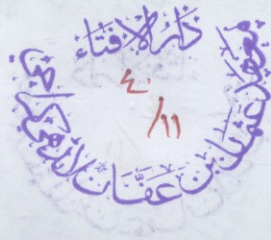 دار الافتاء
٤
/١١
معهد عثمان بن عفان لانڈھی کراچی